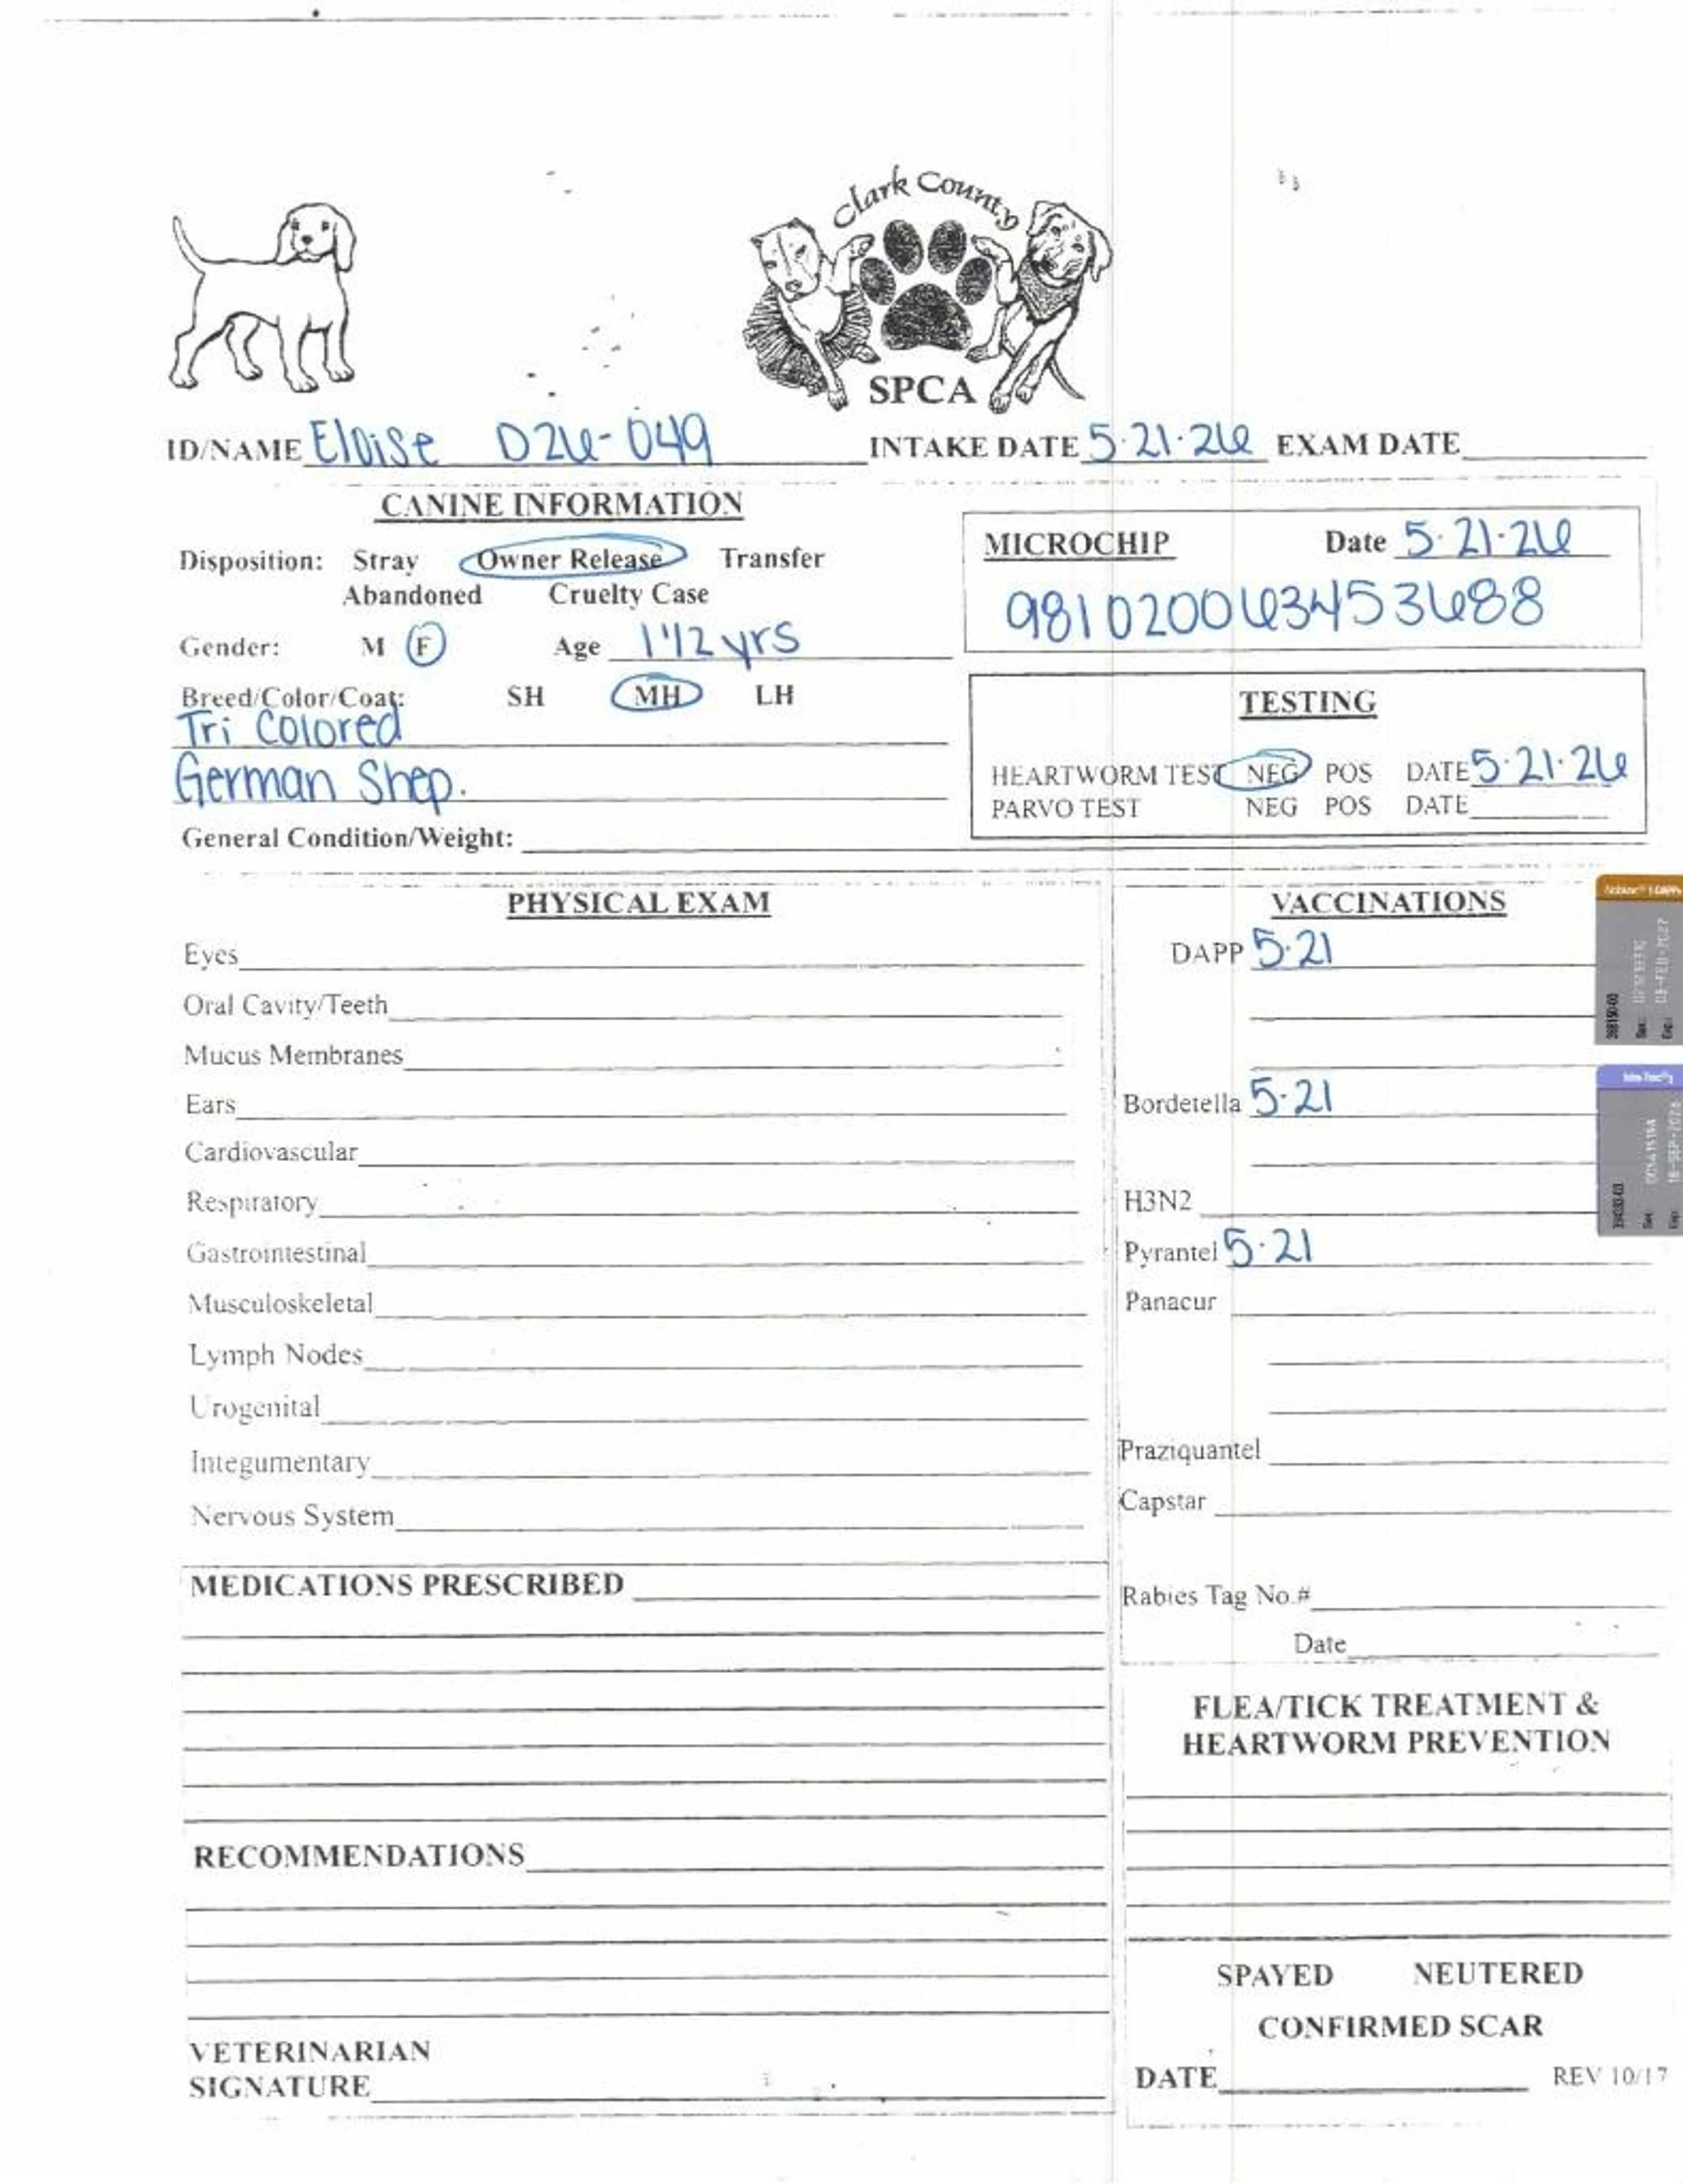 Clark County
SPCA
ID/NAME Eloise D26-049 INTAKE DATE 5·21·26 EXAM DATE
CANINE INFORMATION
Disposition: Stray Owner Release Transfer
Abandoned Cruelty Case
Gender: M F Age 1 1/2 yrs
Breed/Color/Coat: SH MH LH
Tri Colored
German Shep.
General Condition/Weight:
MICROCHIP Date 5·21·26
981020063453688
TESTING
HEARTWORM TEST NEG POS DATE 5·21·26
PARVO TEST NEG POS DATE
PHYSICAL EXAM
Eyes
Oral Cavity/Teeth
Mucus Membranes
Ears
Cardiovascular
Respiratory
Gastrointestinal
Musculoskeletal
Lymph Nodes
Urogenital
Integumentary
Nervous System
MEDICATIONS PRESCRIBED
RECOMMENDATIONS
VETERINARIAN
SIGNATURE
VACCINATIONS
DAPP 5·21
Bordetella 5·21
H3N2
Pyrantel 5·21
Panacur
Praziquantel
Capstar
Rabies Tag No.#
Date
FLEA/TICK TREATMENT &
HEARTWORM PREVENTION
SPAYED NEUTERED
CONFIRMED SCAR
DATE
REV 10/17